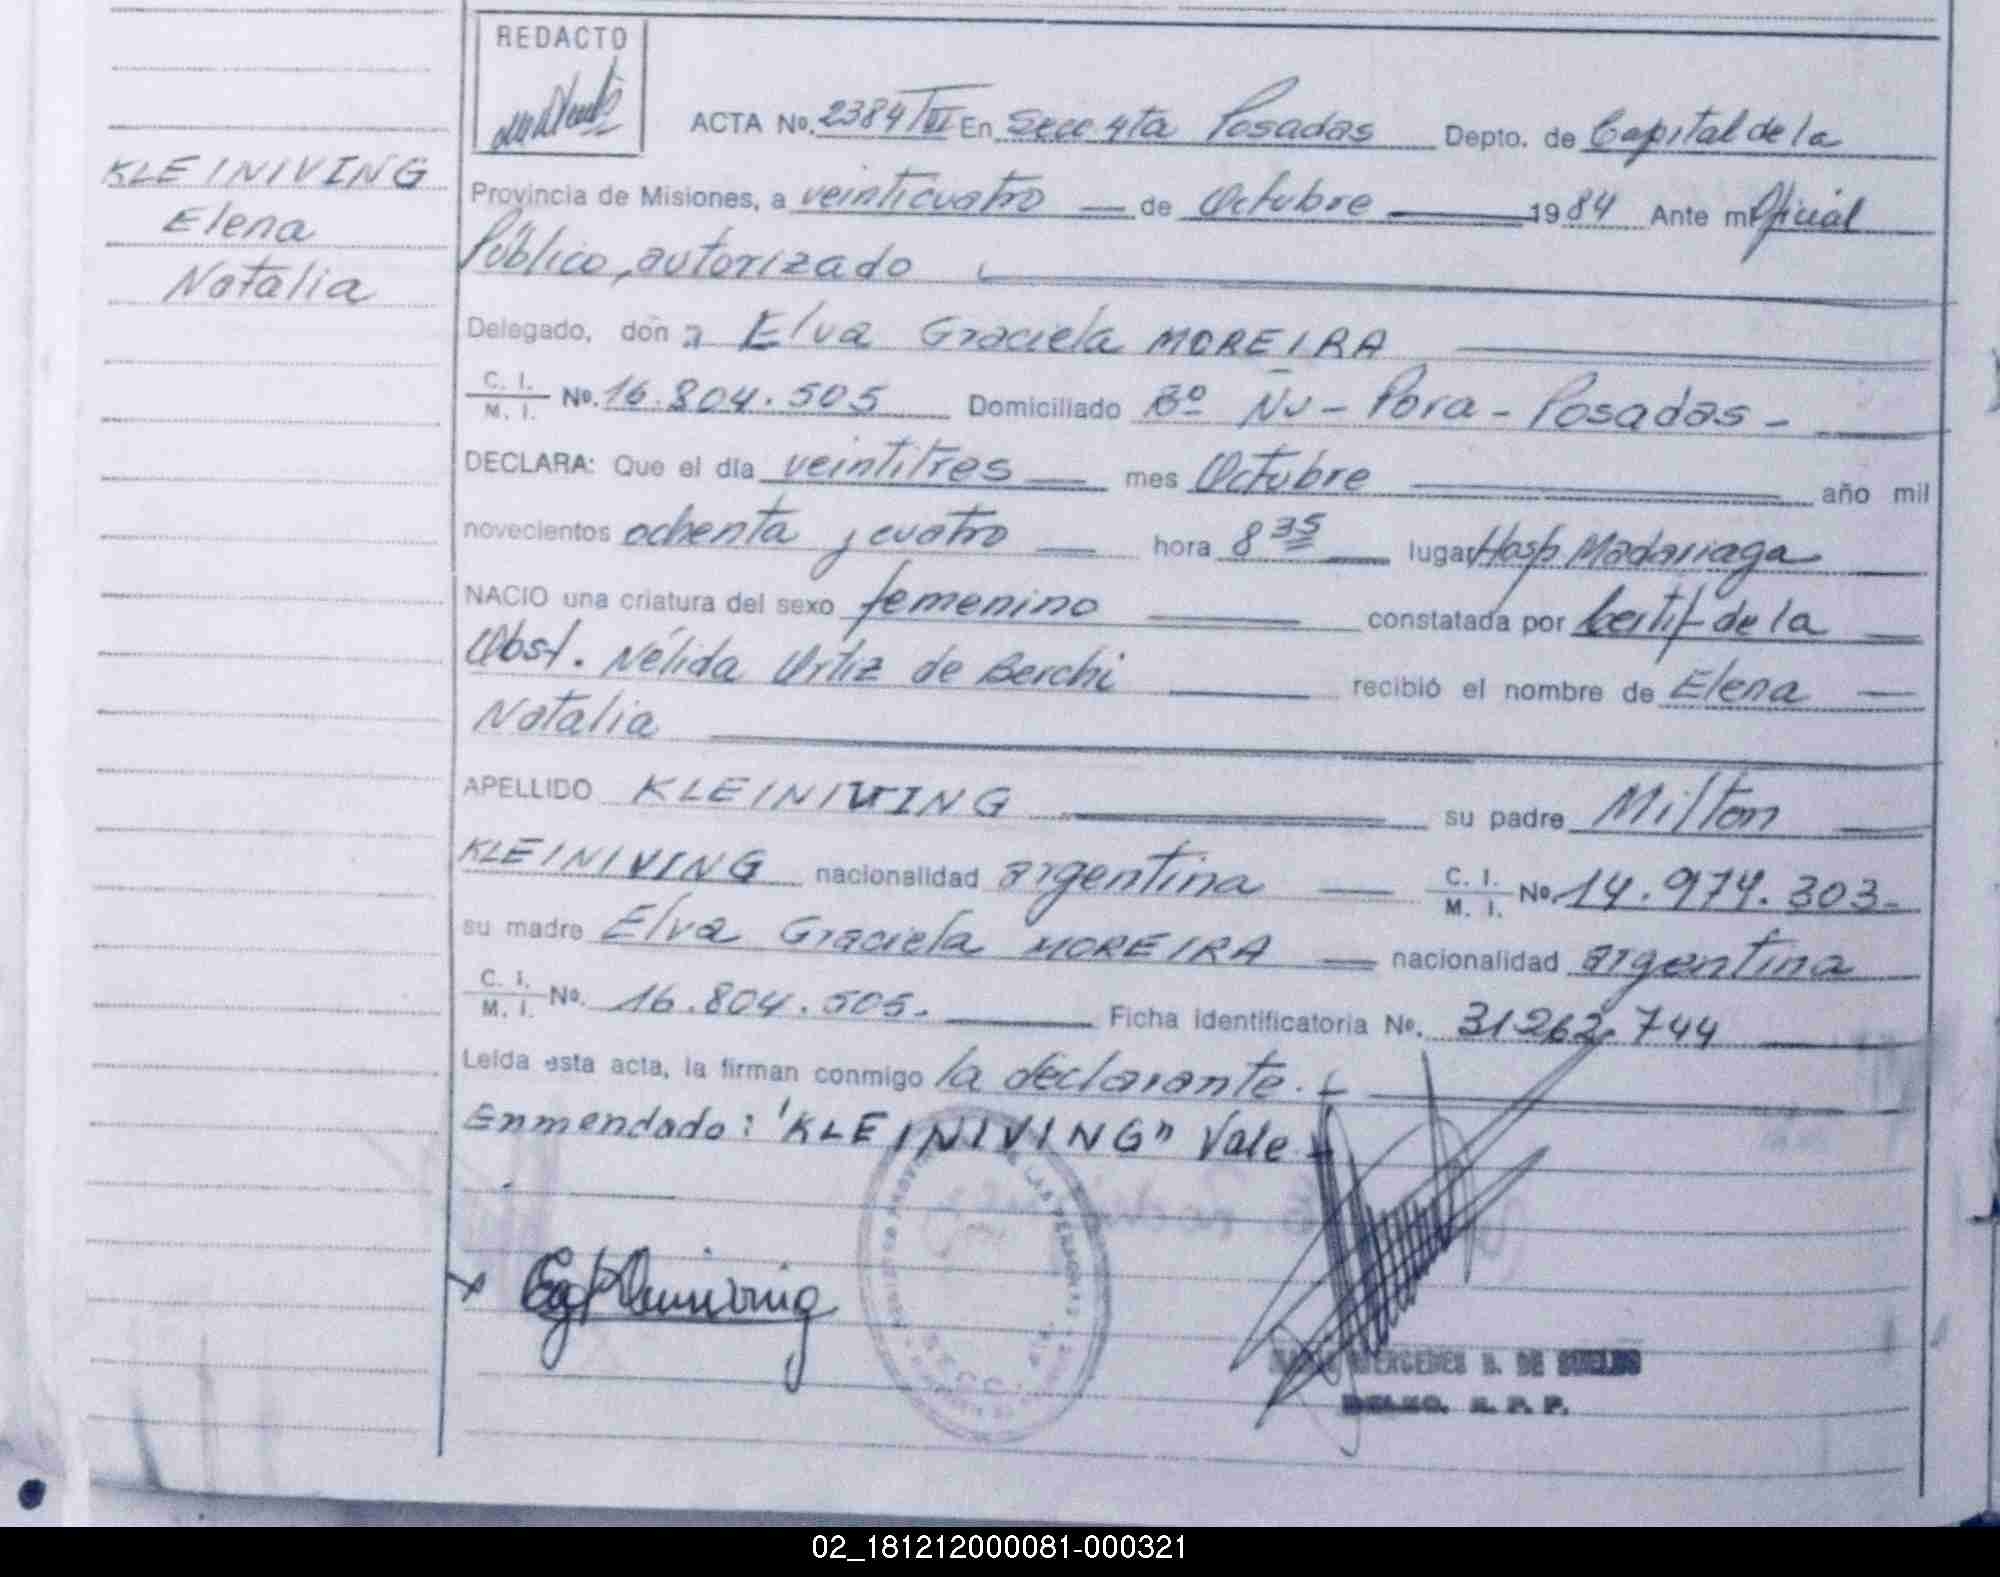 REDACTO
ACTA No. 2384/VI En Secc 4ta Posadas Depto. de Capital de la
KLEINIVING
Elena
Natalia
Provincia de Misiones, a veinticuatro de Octubre 1984 Ante mi Oficial
Público, autorizado
Delegado, don a Elva Graciela MOREIRA
C. I. / M. I. No. 16.804.505 Domiciliado Bº Ñu - Pora - Posadas -
DECLARA: Que el día veintitres mes Octubre año mil
novecientos ochenta y cuatro hora 8 35 lugar Hosp. Madariaga
NACIO una criatura del sexo femenino constatada por Certif de la
Obst. Nélida Ortiz de Berchi recibió el nombre de Elena
Natalia
APELLIDO KLEINIVING su padre Milton
KLEINIVING nacionalidad argentina C. I. / M. I. No. 14.974.303.-
su madre Elva Graciela MOREIRA nacionalidad argentina
C. I. / M. I. No. 16.804.505.- Ficha identificatoria No. 31262.744
Leída esta acta, la firman conmigo la declarante.-
Enmendado: "KLEINIVING" Vale.-
MERCEDES B. DE
R. P. P.
02_181212000081-000321